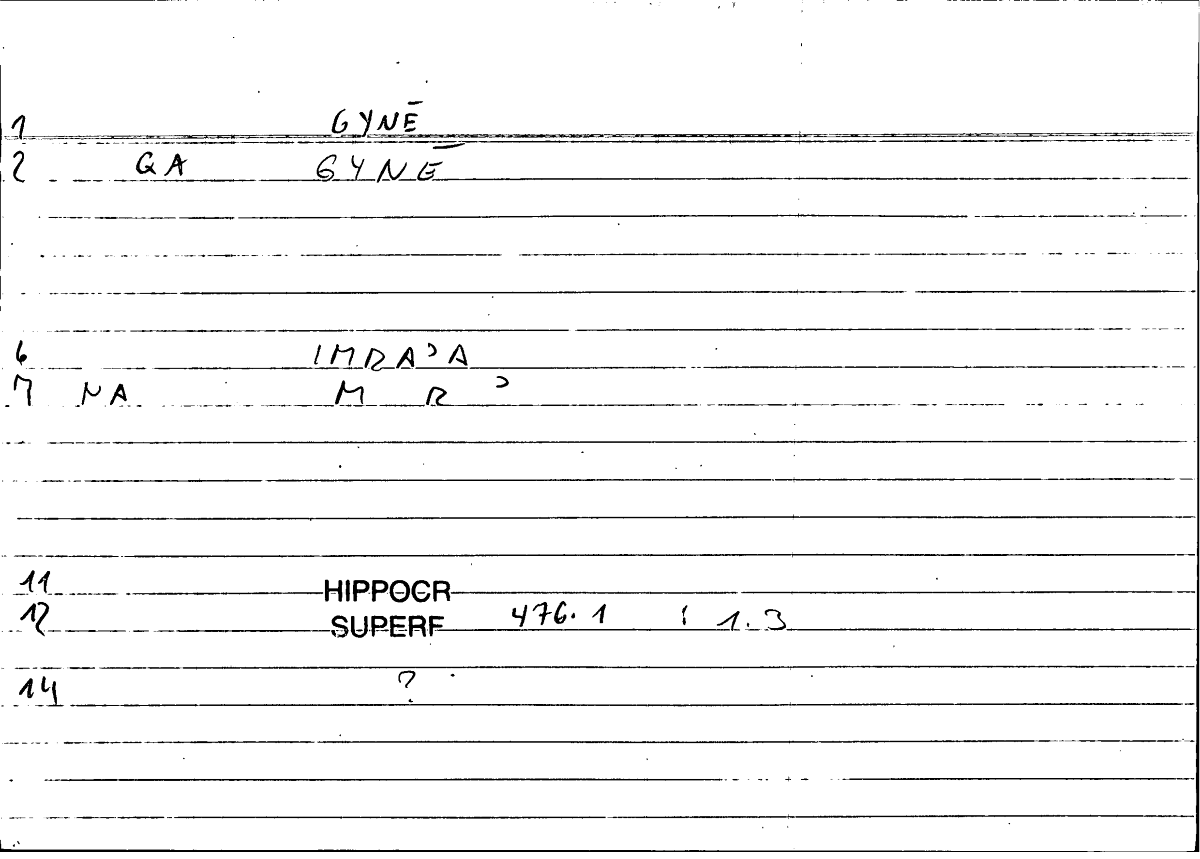 1 GYNĒ
2 GA GYNĒ
6 IMRAʾA
7 NA M R ʾ
11 HIPPOCR
12 SUPERF 476.1 : 1.3
14 ?